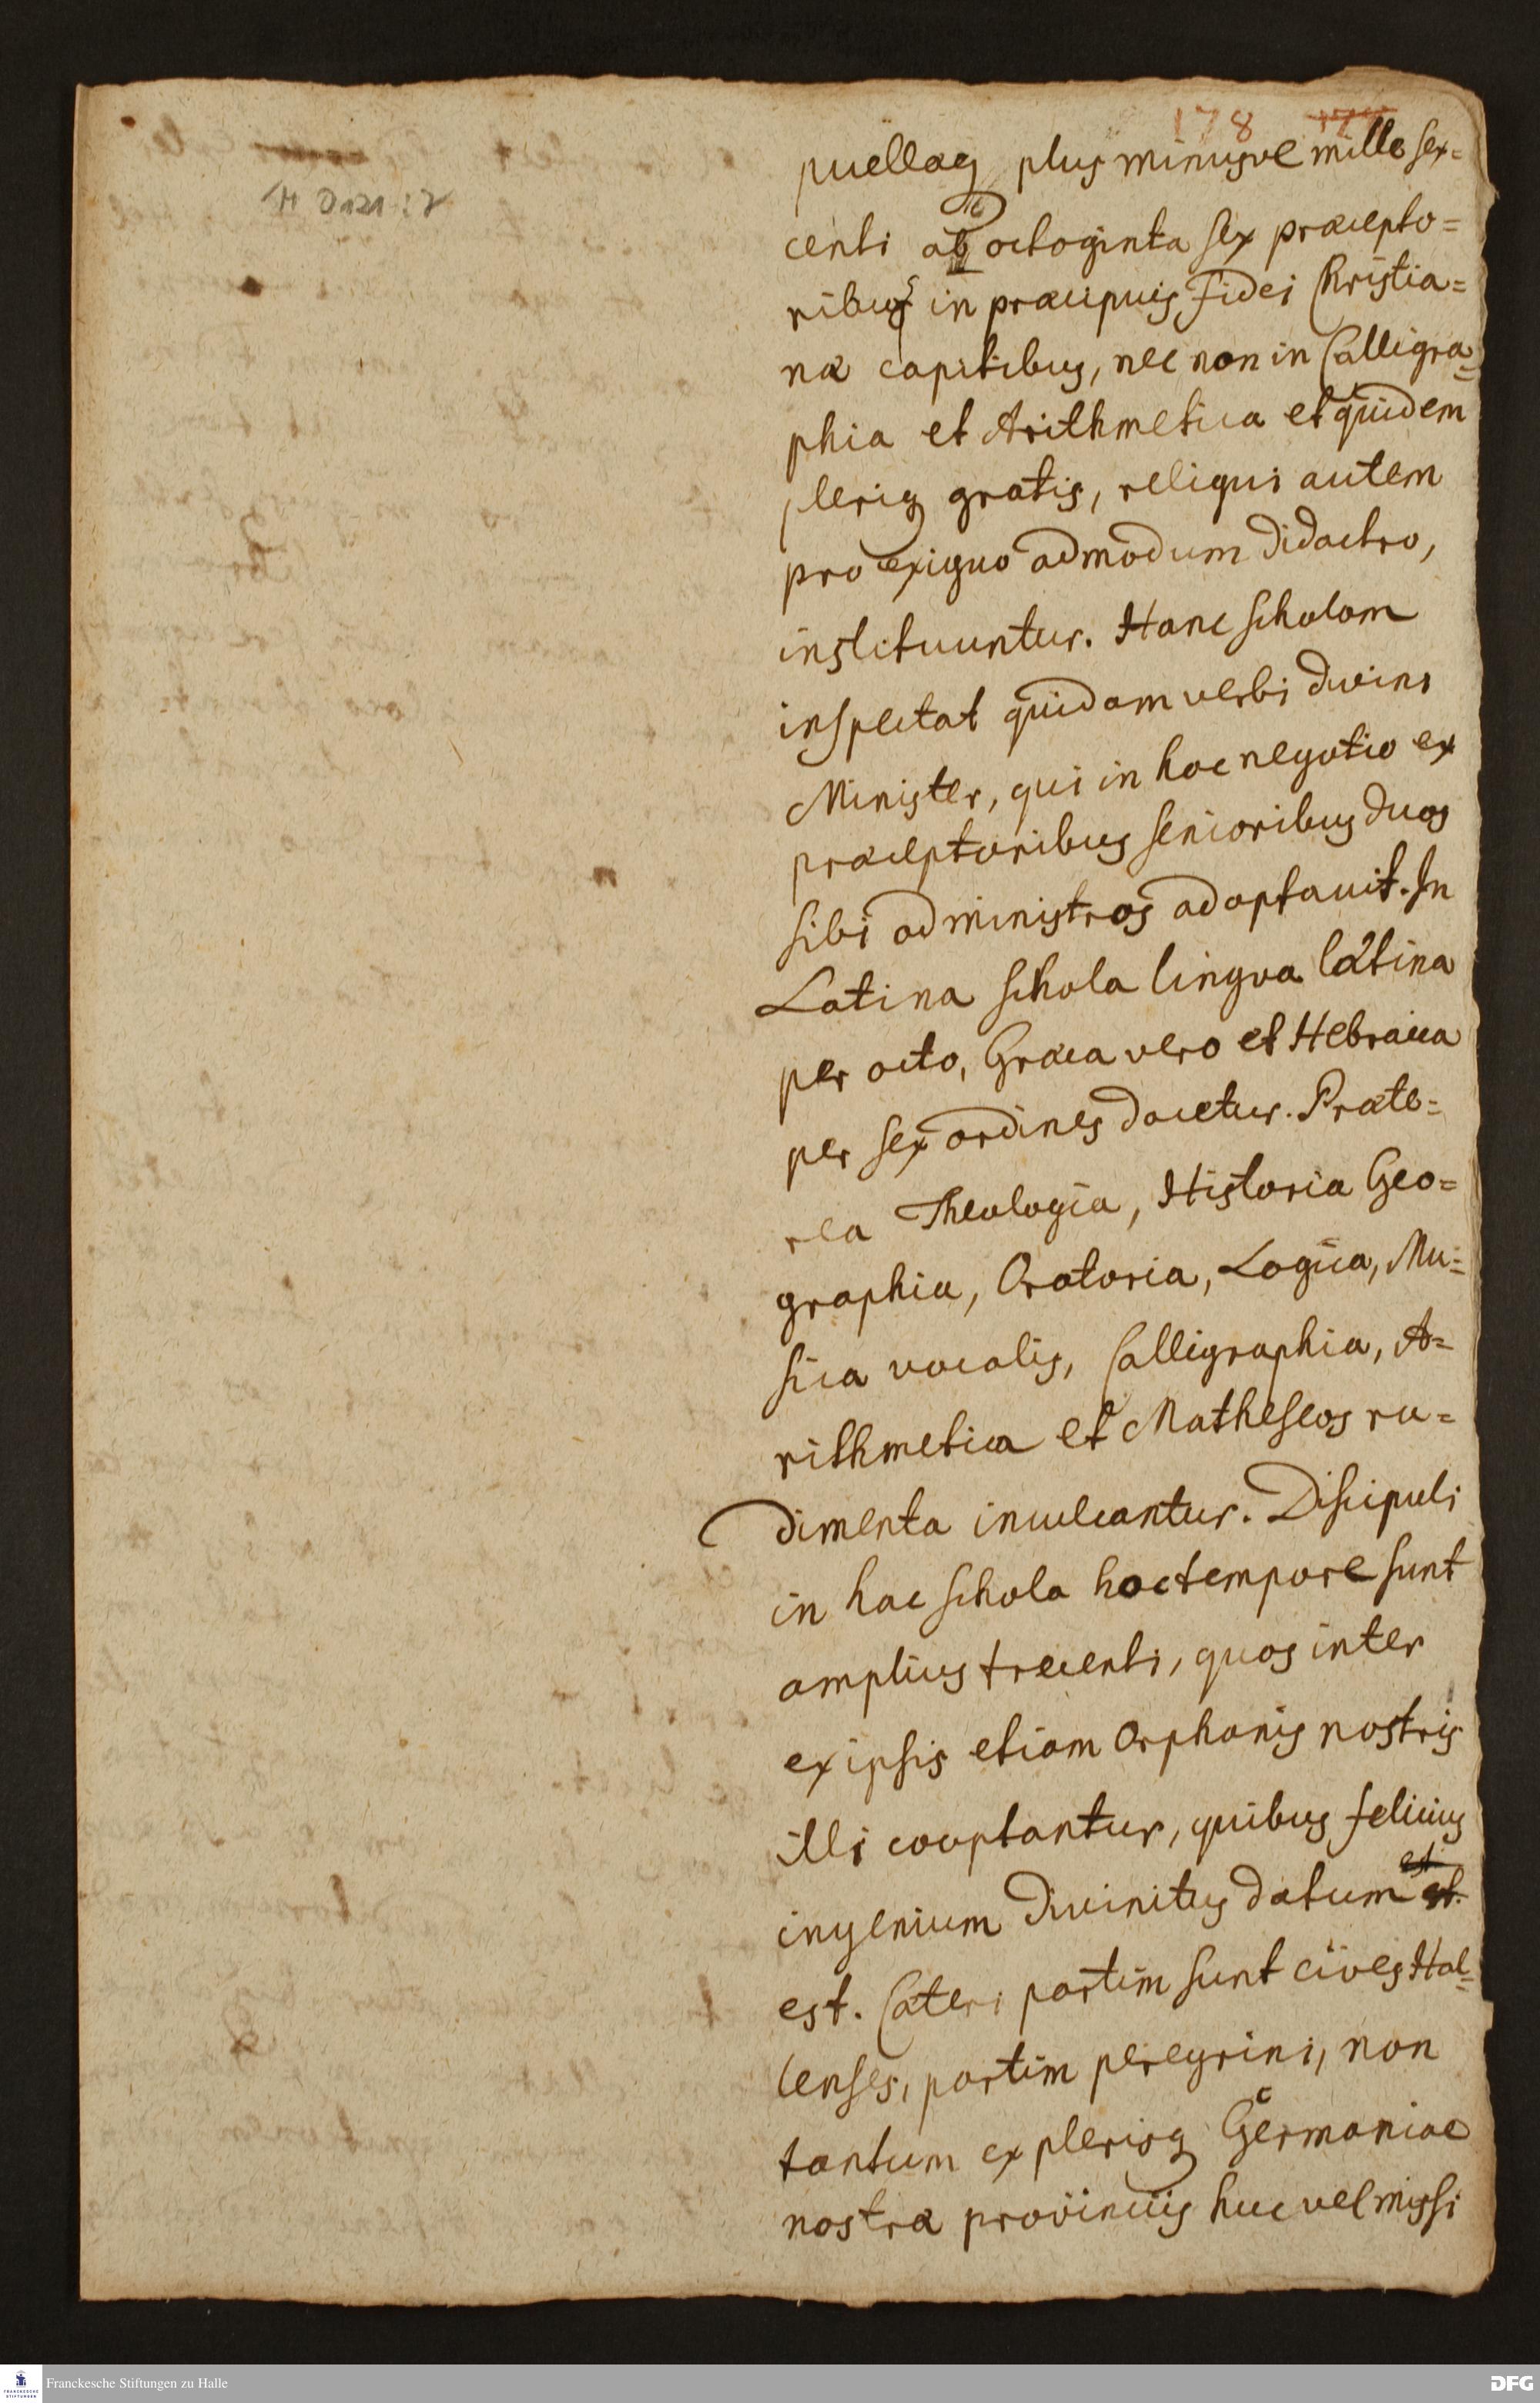 178 179
H D121 : 7
puellaq, plus minusve mille sex=
centi ab octoginta sex præcepto=
ribus in præcipuis fidei Christia=
næ capitibus, nec non in Calligra=
phia et Arithmetica et quidem
pleriq gratis, reliqui autem
pro exiguo admodum didactro,
instituuntur. Hanc scholam
inspectat quidam verbi divini
Minister, qui in hoc negotio ex
præceptoribus senioribus duos
sibi administros adoptavit. In
Latina schola lingva latina
per octo, Græca vero et Hebraica
per sex ordines docetur. Præte=
rea Theologia, Historia Geo=
graphia, Oratoria, Logica, Mu=
sica vocalis, Calligraphia, A=
rithmetica et Matheseos ru=
dimenta inculcantur. Discipuli
in hac schola hoc tempore sunt
amplius trecenti, quos inter
ex ipsis etiam Orphanis nostris
illi cooptantur, quibus felicius
ingenium divinitus datum
est. Cæteri partim sunt cives Hal=
lenses, partim peregrini, non
tantum ex plerisq Germaniae
nostræ provinciis huc vel missi
Franckesche Stiftungen zu Halle
FRANCKESCHE STIFTUNGEN
DFG